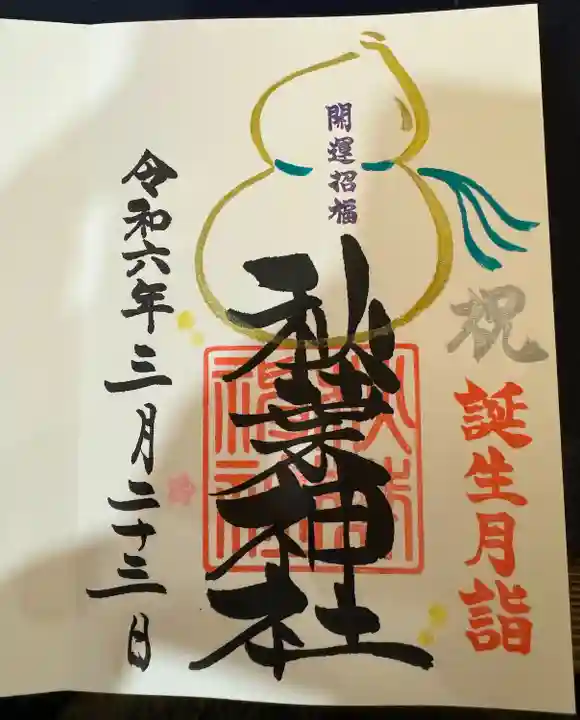 祝
誕生月詣
開運招福
秋葉神社
令和六年三月二十三日